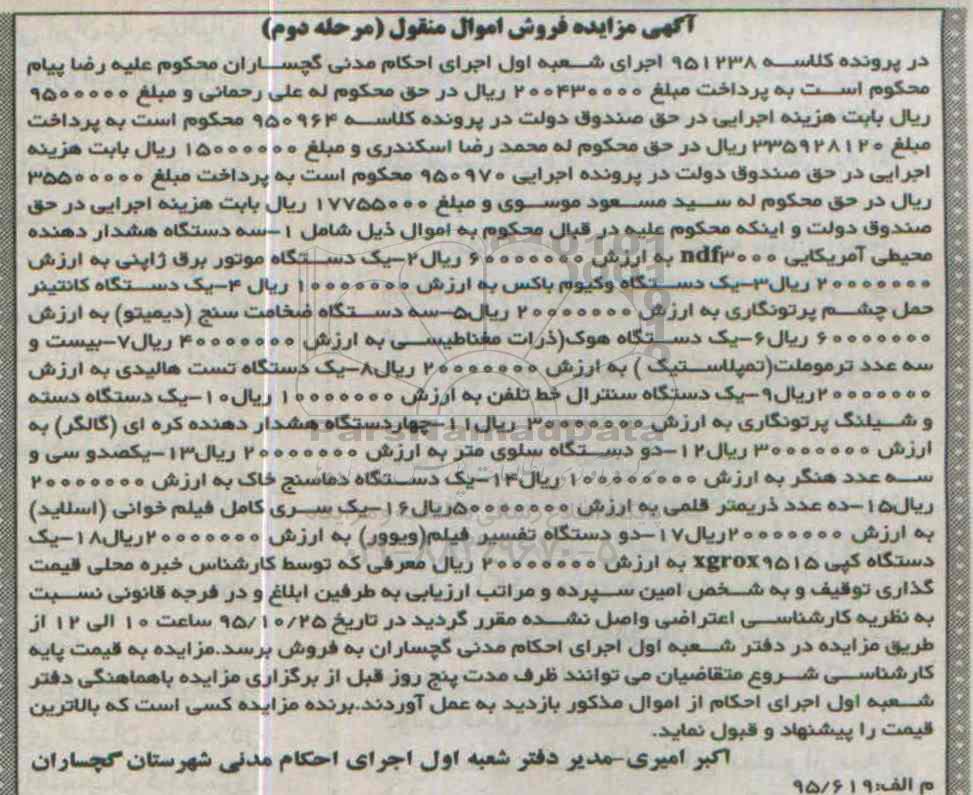 آگهی مزایده فروش اموال منقول (مرحله دوم)
در پرونده کلاسه ۹۵۱۲۳۸ اجرای شعبه اول اجرای احکام مدنی گچساران محکوم علیه رضا پیام
محکوم است به پرداخت مبلغ ۲۰۰۴۳۰۰۰۰ ریال در حق محکوم له علی رحمانی و مبلغ ۹۵۰۰۰۰۰
ریال بابت هزینه اجرایی در حق صندوق دولت در پرونده کلاسه ۹۵۰۹۶۴ محکوم است به پرداخت
مبلغ ۳۳۵۹۲۸۱۲۰ ریال در حق محکوم له محمد رضا اسکندری و مبلغ ۱۵۰۰۰۰۰۰ ریال بابت هزینه
اجرایی در حق صندوق دولت در پرونده اجرایی ۹۵۰۹۷۰ محکوم است به پرداخت مبلغ ۳۵۵۰۰۰۰۰۰
ریال در حق محکوم له سید مسعود موسوی و مبلغ ۱۷۷۵۵۰۰۰ ریال بابت هزینه اجرایی در حق
صندوق دولت و اینکه محکوم علیه در قبال محکوم به اموال ذیل شامل ۱-سه دستگاه هشدار دهنده
محیطی آمریکایی ndf۳۰۰۰ به ارزش ۶۰۰۰۰۰۰۰ ریال۲-یک دستگاه موتور برق ژاپنی به ارزش
۲۰۰۰۰۰۰۰ ریال۳-یک دستگاه وکیوم باکس به ارزش ۱۰۰۰۰۰۰۰ ریال ۴-یک دستگاه کانتینر
حمل چشم پرتونگاری به ارزش ۲۰۰۰۰۰۰۰ ریال۵-سه دستگاه ضخامت سنج (دیمیتو) به ارزش
۶۰۰۰۰۰۰۰ ریال۶-یک دستگاه هوک(ذرات مغناطیسی به ارزش ۴۰۰۰۰۰۰۰ ریال۷-بیست و
سه عدد ترموملت(تمپلاستیک ) به ارزش ۲۰۰۰۰۰۰۰ ریال۸-یک دستگاه تست هالیدی به ارزش
۲۰۰۰۰۰۰۰ریال۹-یک دستگاه سنترال خط تلفن به ارزش ۱۰۰۰۰۰۰۰ ریال۱۰-یک دستگاه دسته
و شیلنگ پرتونگاری به ارزش ۳۰۰۰۰۰۰۰ ریال۱۱-چهاردستگاه هشدار دهنده کره ای (گالگر) به
ارزش ۳۰۰۰۰۰۰۰ ریال۱۲-دو دستگاه سلوی متر به ارزش ۲۰۰۰۰۰۰۰ ریال۱۳-یکصدو سی و
سه عدد هنگر به ارزش ۱۰۰۰۰۰۰۰۰ ریال۱۴-یک دستگاه دماسنج خاک به ارزش ۲۰۰۰۰۰۰۰
ریال۱۵-ده عدد ذریمتر قلمی به ارزش ۵۰۰۰۰۰۰۰ریال۱۶-یک سری کامل فیلم خوانی (اسلاید)
به ارزش ۲۰۰۰۰۰۰۰ریال۱۷-دو دستگاه تفسیر فیلم(ویوور) به ارزش ۲۰۰۰۰۰۰۰ریال۱۸-یک
دستگاه کپی xgrox۹۵۱۵ به ارزش ۲۰۰۰۰۰۰۰ ریال معرفی که توسط کارشناس خبره محلی قیمت
گذاری توقیف و به شخص امین سپرده و مراتب ارزیابی به طرفین ابلاغ و در فرجه قانونی نسبت
به نظریه کارشناسی اعتراضی واصل نشده مقرر گردید در تاریخ ۹۵/۱۰/۲۵ ساعت ۱۰ الی ۱۲ از
طریق مزایده در دفتر شعبه اول اجرای احکام مدنی گچساران به فروش برسد.مزایده به قیمت پایه
کارشناسی شروع متقاضیان می توانند ظرف مدت پنج روز قبل از برگزاری مزایده باهماهنگی دفتر
شعبه اول اجرای احکام از اموال مذکور بازدید به عمل آوردند.برنده مزایده کسی است که بالاترین
قیمت را پیشنهاد و قبول نماید.
اکبر امیری-مدیر دفتر شعبه اول اجرای احکام مدنی شهرستان گچساران
م الف:۹۵/۶۱۹